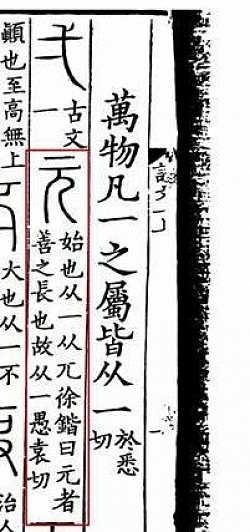 萬物凡一之屬皆从一
於悉
切
弌
古文
一
元
始也从一从兀徐鍇曰元者
善之長也故从一愚袁切
顚也至高無上
大也从一不
治人